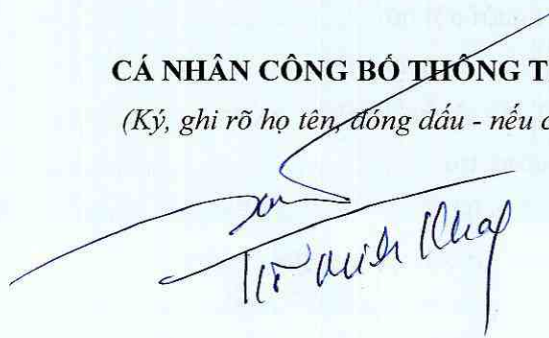 CÁ NHÂN CÔNG BỐ THÔNG T
(Ký, ghi rõ họ tên, đóng dấu - nếu c
Minh